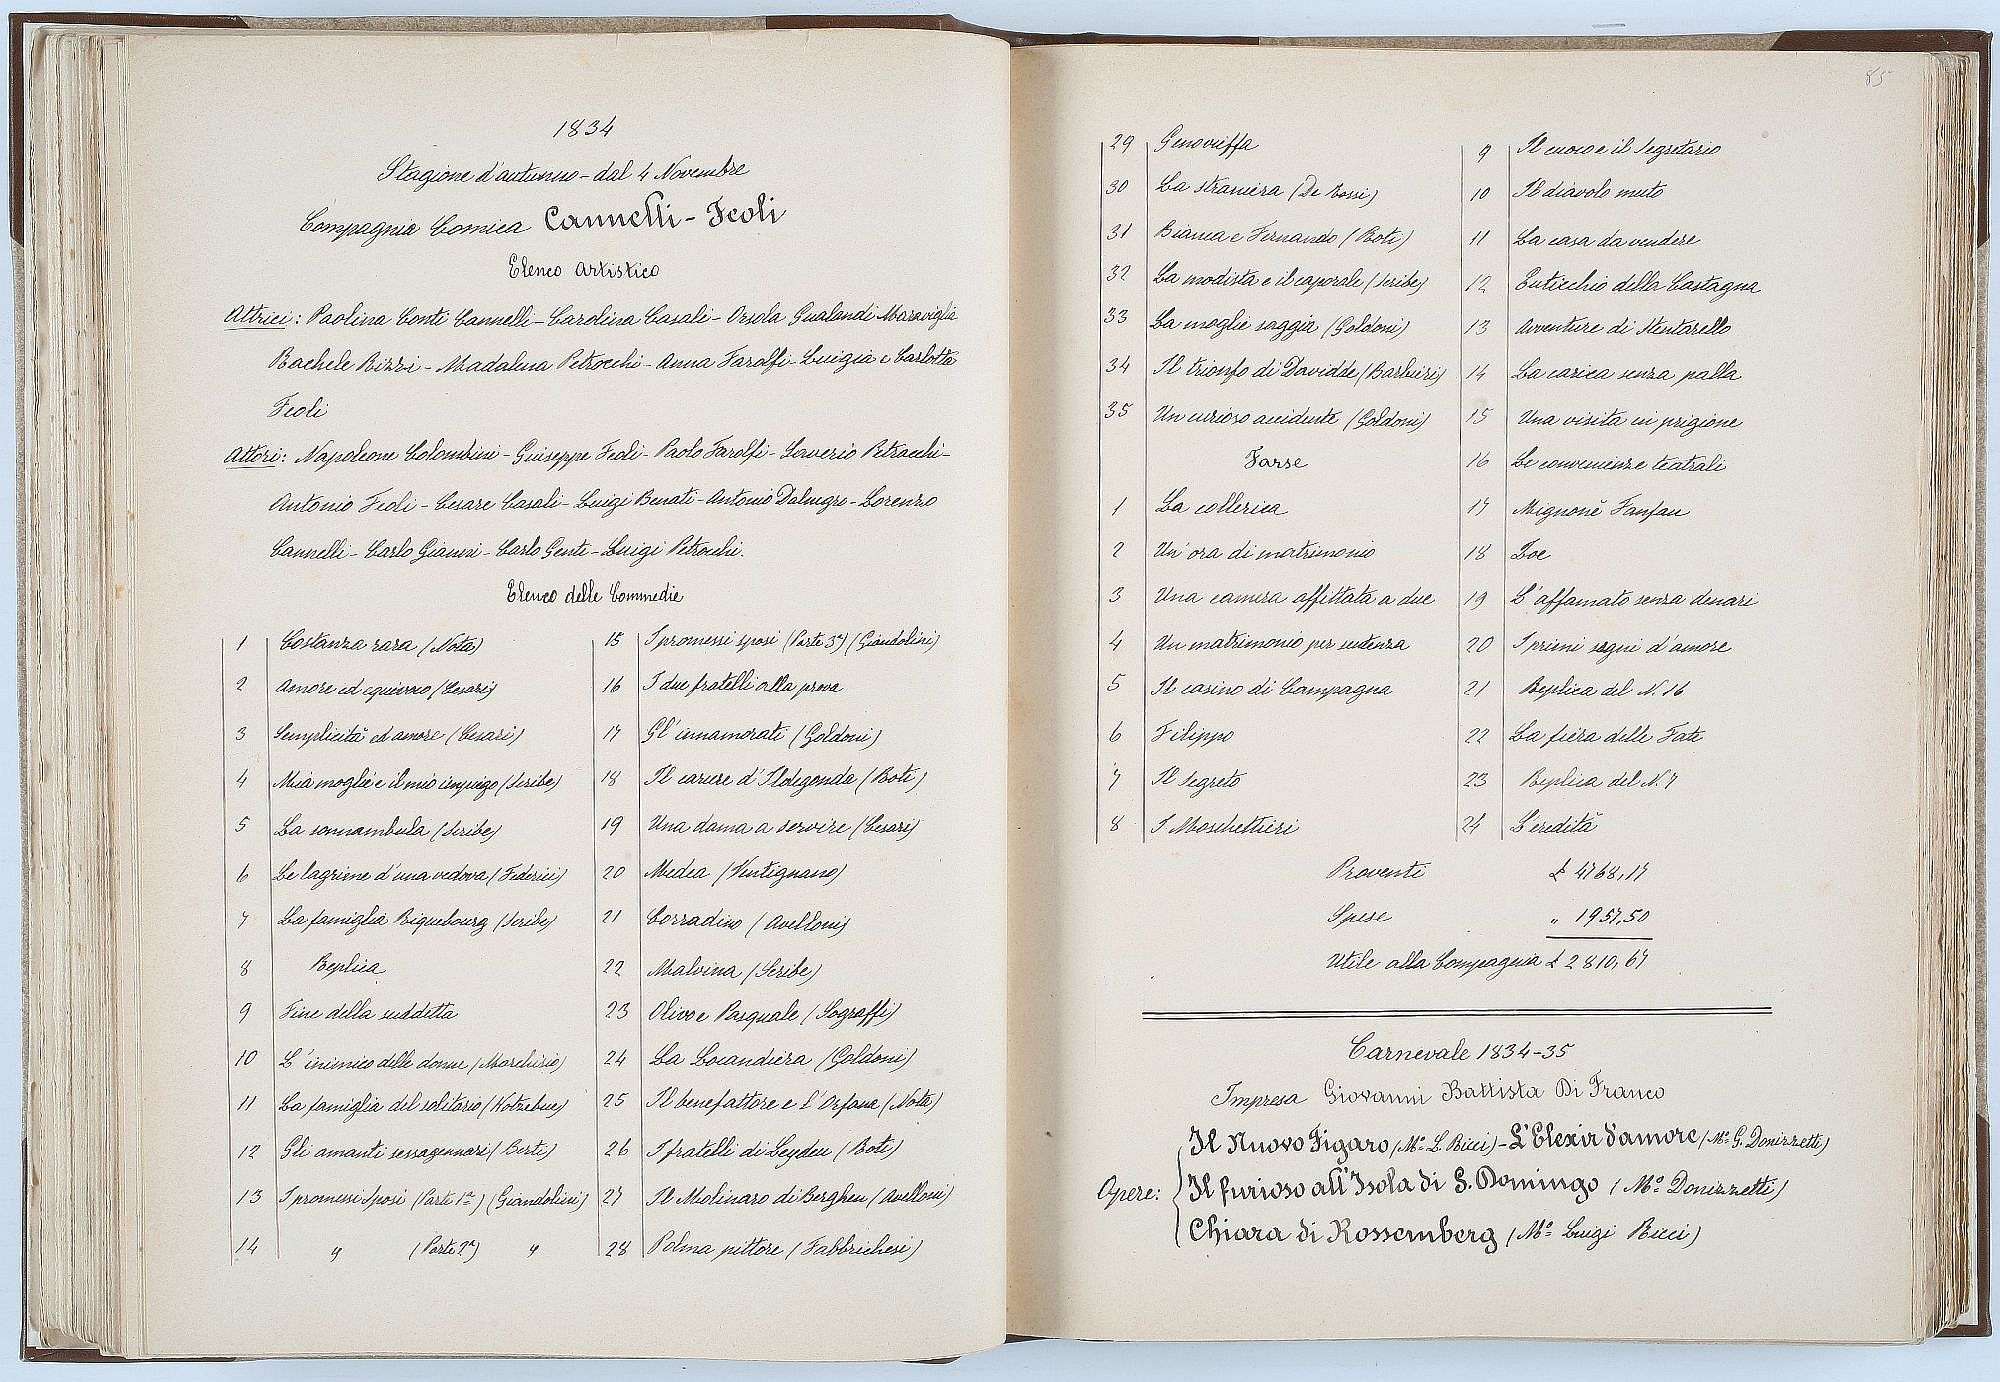 1834
Stagione d'autunno - dal 4 Novembre
Compagnia Comica Cannelli - Feoli
Elenco Artistico
Attrici: Paolina Conti Cannelli - Carolina Casali - Orsola Gualandi Maraviglia
Rachele Rizzi - Madalena Petrocchi - Anna Farolfi - Luigia e Carlotta
Feoli
Attori: Napoleone Colombini - Guiseppe Feoli - Paolo Farolfi - Saverio Petrocchi -
Antonio Feoli - Cesare Casali - Luigi Benati - Antonio Dalnegro - Lorenzo
Cannelli - Carlo Gianni - Carlo Genti - Luigi Petrocchi.
Elenco delle Commedie
1 Costanza rara (Nota)
2 Amore ed equivoco (Cesari)
3 Semplicità ed amore (Cesari)
4 Mia moglie e il mio impiego (Scribe)
5 La sonnambula (Scribe)
6 Le lagrime d'una vedova (Federici)
7 La famiglia Riquebourg (Scribe)
8 Replica
9 Fine della suddetta
10 L'inimico delle donne (Marchisio)
11 La famiglia del solitario (Kotzebue)
12 Gli amanti sessagennari (Berti)
13 I promessi Sposi (Parte 1a) (Giandolini)
14 " (Parte 2a) "
15 I promessi sposi (Parte 3a) (Giandolini)
16 I due fratelli alla prova
17 Gl'innamorati (Goldoni)
18 Il carcere d'Ildegonda (Boti)
19 Una dama a servire (Cesari)
20 Medea (Ventignano)
21 Corradino (Avelloni)
22 Malvina (Scribe)
23 Olivo e Pasquale (Sograffi)
24 La Locandiera (Goldoni)
25 Il benefattore e l'Orfana (Nota)
26 I fratelli di Leyden (Boti)
27 Il Molinaro di Berghen (Avelloni)
28 Polma pittore (Fabbrichesi)
85
29 Genovieffa
30 La straniera (De Rossi)
31 Bianca e Fernando (Boti)
32 La modista e il caporale (Scribe)
33 La moglie saggia (Goldoni)
34 Il trionfo di Davidde (Barbieri)
35 Un curioso accidente (Goldoni)
Farse
1 La collerica
2 Un'ora di matrimonio
3 Una camera affittata a due
4 Un matrimonio per sentenza
5 Il casino di Campagna
6 Filippo
7 Il Segreto
8 I Moschettieri
9 Il cuoco e il Segretario
10 Il diavolo muto
11 La casa da vendere
12 Euticchio della Castagna
13 Avventure di Stentarello
14 La carica senza palla
15 Una visita in prigione
16 Le convenienze teatrali
17 Mignonè Fanfan
18 Zoe
19 L'affamato senza denari
20 I primi segni d'amore
21 Replica del N. 16
22 La fiera delle Fate
23 Replica del N. 7
24 L'eredità
Proventi £ 4768,17
Spese " 1957,50
Utile alla Compagnia £ 2810,67
Carnevale 1834-35
Impresa Giovanni Battista Di Franco
Opere:
Il Nuovo Figaro (Mo. L. Ricci) - L'Elexir d'amore (Mo. G. Donizzetti)
Il furioso all'Isola di S. Domingo (Mo. Donizzetti)
Chiara di Rossemberg (Mo. Luigi Ricci)